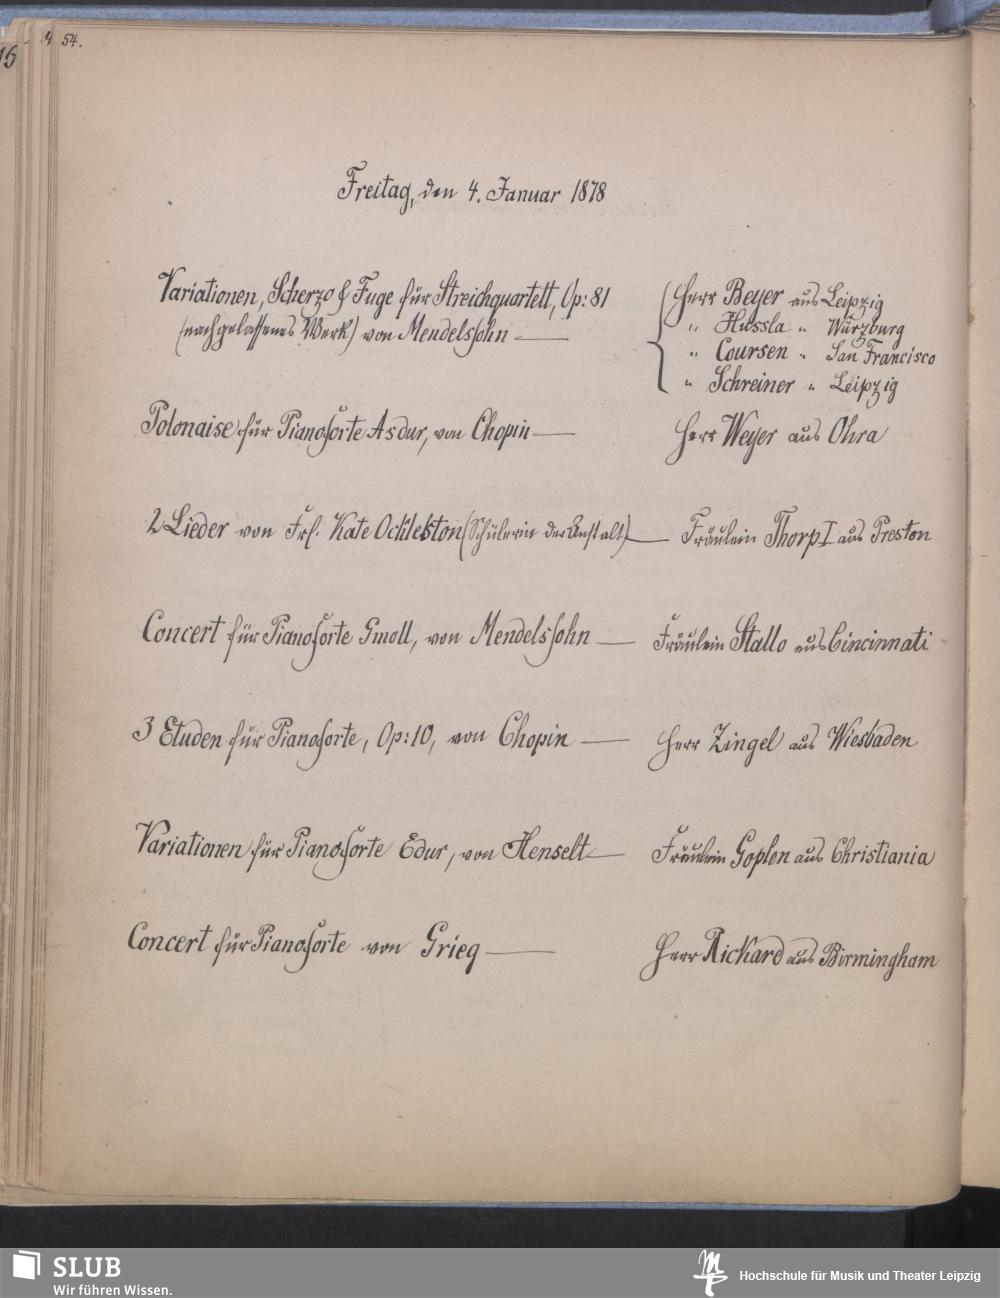 54.
Freitag, den 4. Januar 1878
Variationen, Scherzo & Fuge für Streichquartett, Op: 81
(nachgelassenes Werk) von Mendelssohn —
Herr Beyer aus Leipzig
" Hussla " Würzburg
" Coursen " San Francisco
" Schreiner " Leipzig
Polonaise für Pianoforte As dur, von Chopin — Herr Weyer aus Ohra
2 Lieder von Frl. Kate Ockleston (Schülerin der Anstalt) — Fräulein Thorp I aus Preston
Concert für Pianoforte Gmoll, von Mendelssohn — Fräulein Stallo aus Cincinnati
3 Etuden für Pianoforte, Op: 10, von Chopin — Herr Zingel aus Wiesbaden
Variationen für Pianoforte Edur, von Henselt — Fräulein Goplen aus Christiania
Concert für Pianoforte von Grieg — Herr Rickard aus Birmingham
SLUB
Wir führen Wissen.
Hochschule für Musik und Theater Leipzig